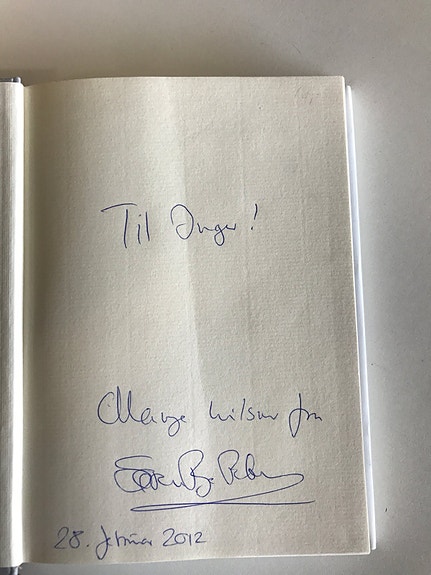 Til Inger!
Mange hilsner fra
28. februar 2012